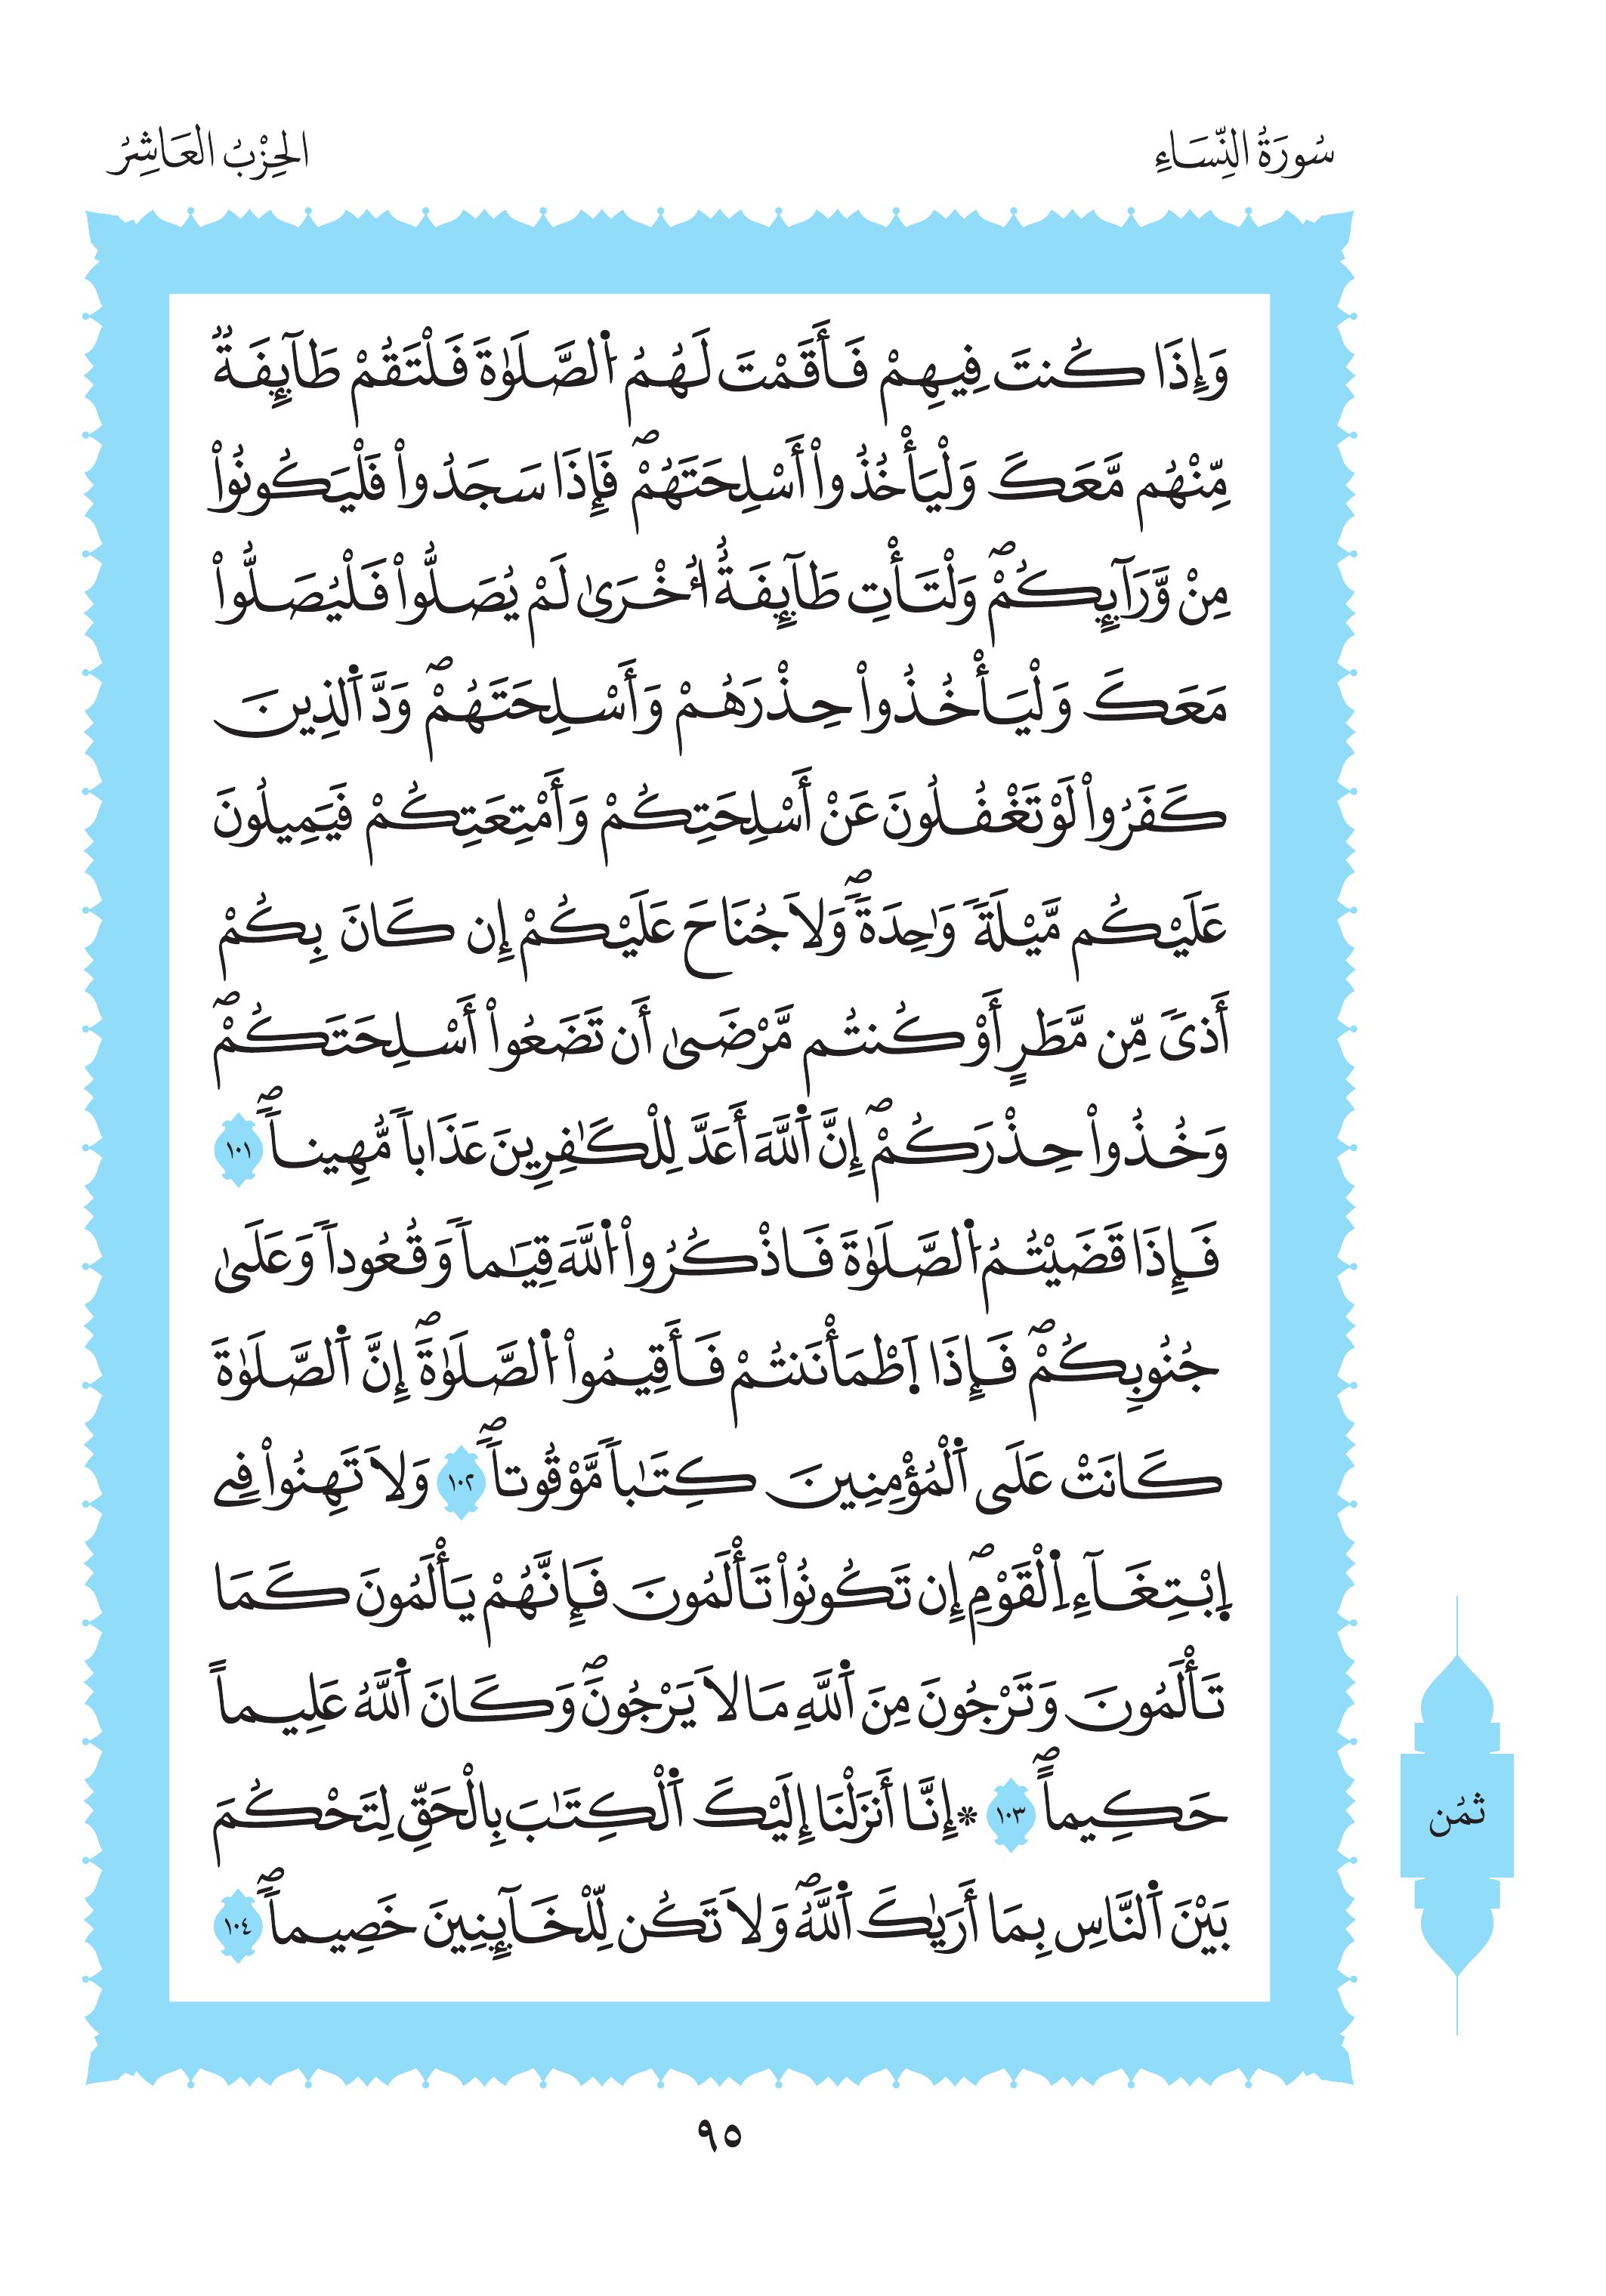 سُورَةُ النِّسَاءِ
الحِزْبُ العَاشِرُ
وَإِذَا كُنتَ فِيهِمْ فَأَقَمْتَ لَهُمُ اُ۬لصَّلَوٰةَ فَلْتَقُمْ طَآئِفَةٞ
مِّنْهُم مَّعَكَ وَلْيَأْخُذُواْ أَسْلِحَتَهُمْۖ فَإِذَا سَجَدُواْ فَلْيَكُونُواْ
مِنْ وَّرَآئِكُمْۖ وَلْتَأْتِ طَآئِفَةٌ أُخْرَىٰ لَمْ يُصَلُّواْ فَلْيُصَلُّواْ
مَعَكَ وَلْيَأْخُذُواْ حِذْرَهُمْ وَأَسْلِحَتَهُمْۖ وَدَّ اَ۬لذِينَ
كَفَرُواْ لَوْ تَغْفُلُونَ عَنْ أَسْلِحَتِكُمْ وَأَمْتِعَتِكُمْ فَيَمِيلُونَ
عَلَيْكُم مَّيْلَةٗ وَٰحِدَةٗۖ وَلَا جُنَاحَ عَلَيْكُمْ إِن كَانَ بِكُمْ
أَذىٗ مِّن مَّطَرٍ أَوْ كُنتُم مَّرْضَىٰ أَن تَضَعُواْ أَسْلِحَتَكُمْۖ
وَخُذُواْ حِذْرَكُمْۖ إِنَّ اَ۬للَّهَ أَعَدَّ لِلْكَٰفِرِينَ عَذَاباٗ مُّهِيناٗۖ ١٠١
فَإِذَا قَضَيْتُمُ اُ۬لصَّلَوٰةَ فَاذْكُرُواْ اُ۬للَّهَ قِيَٰماٗ وَقُعُوداٗ وَعَلَىٰ
جُنُوبِكُمْۖ فَإِذَا اَ۪طْمَأْنَنتُمْ فَأَقِيمُواْ اُ۬لصَّلَوٰةَۖ إِنَّ اَ۬لصَّلَوٰةَ
كَانَتْ عَلَى اَ۬لْمُؤْمِنِينَ كِتَٰباٗ مَّوْقُوتاٗۖ ١٠٢ وَلَا تَهِنُواْ فِے
اِ۪بْتِغَآءِ اِ۬لْقَوْمِۖ إِن تَكُونُواْ تَأْلَمُونَ فَإِنَّهُمْ يَأْلَمُونَ كَمَا
تَأْلَمُونَ وَتَرْجُونَ مِنَ اَ۬للَّهِ مَا لَا يَرْجُونَۖ وَكَانَ اَ۬للَّهُ عَلِيماً
حَكِيماًۖ ١٠٣ *إِنَّا أَنزَلْنَا إِلَيْكَ اَ۬لْكِتَٰبَ بِالْحَقِّ لِتَحْكُمَ
بَيْنَ اَ۬لنَّاسِ بِمَا أَرَيٰكَ اَ۬للَّهُۖ وَلَا تَكُن لِّلْخَآئِنِينَ خَصِيماٗۖ ١٠٤
ثُمُن
٩٥